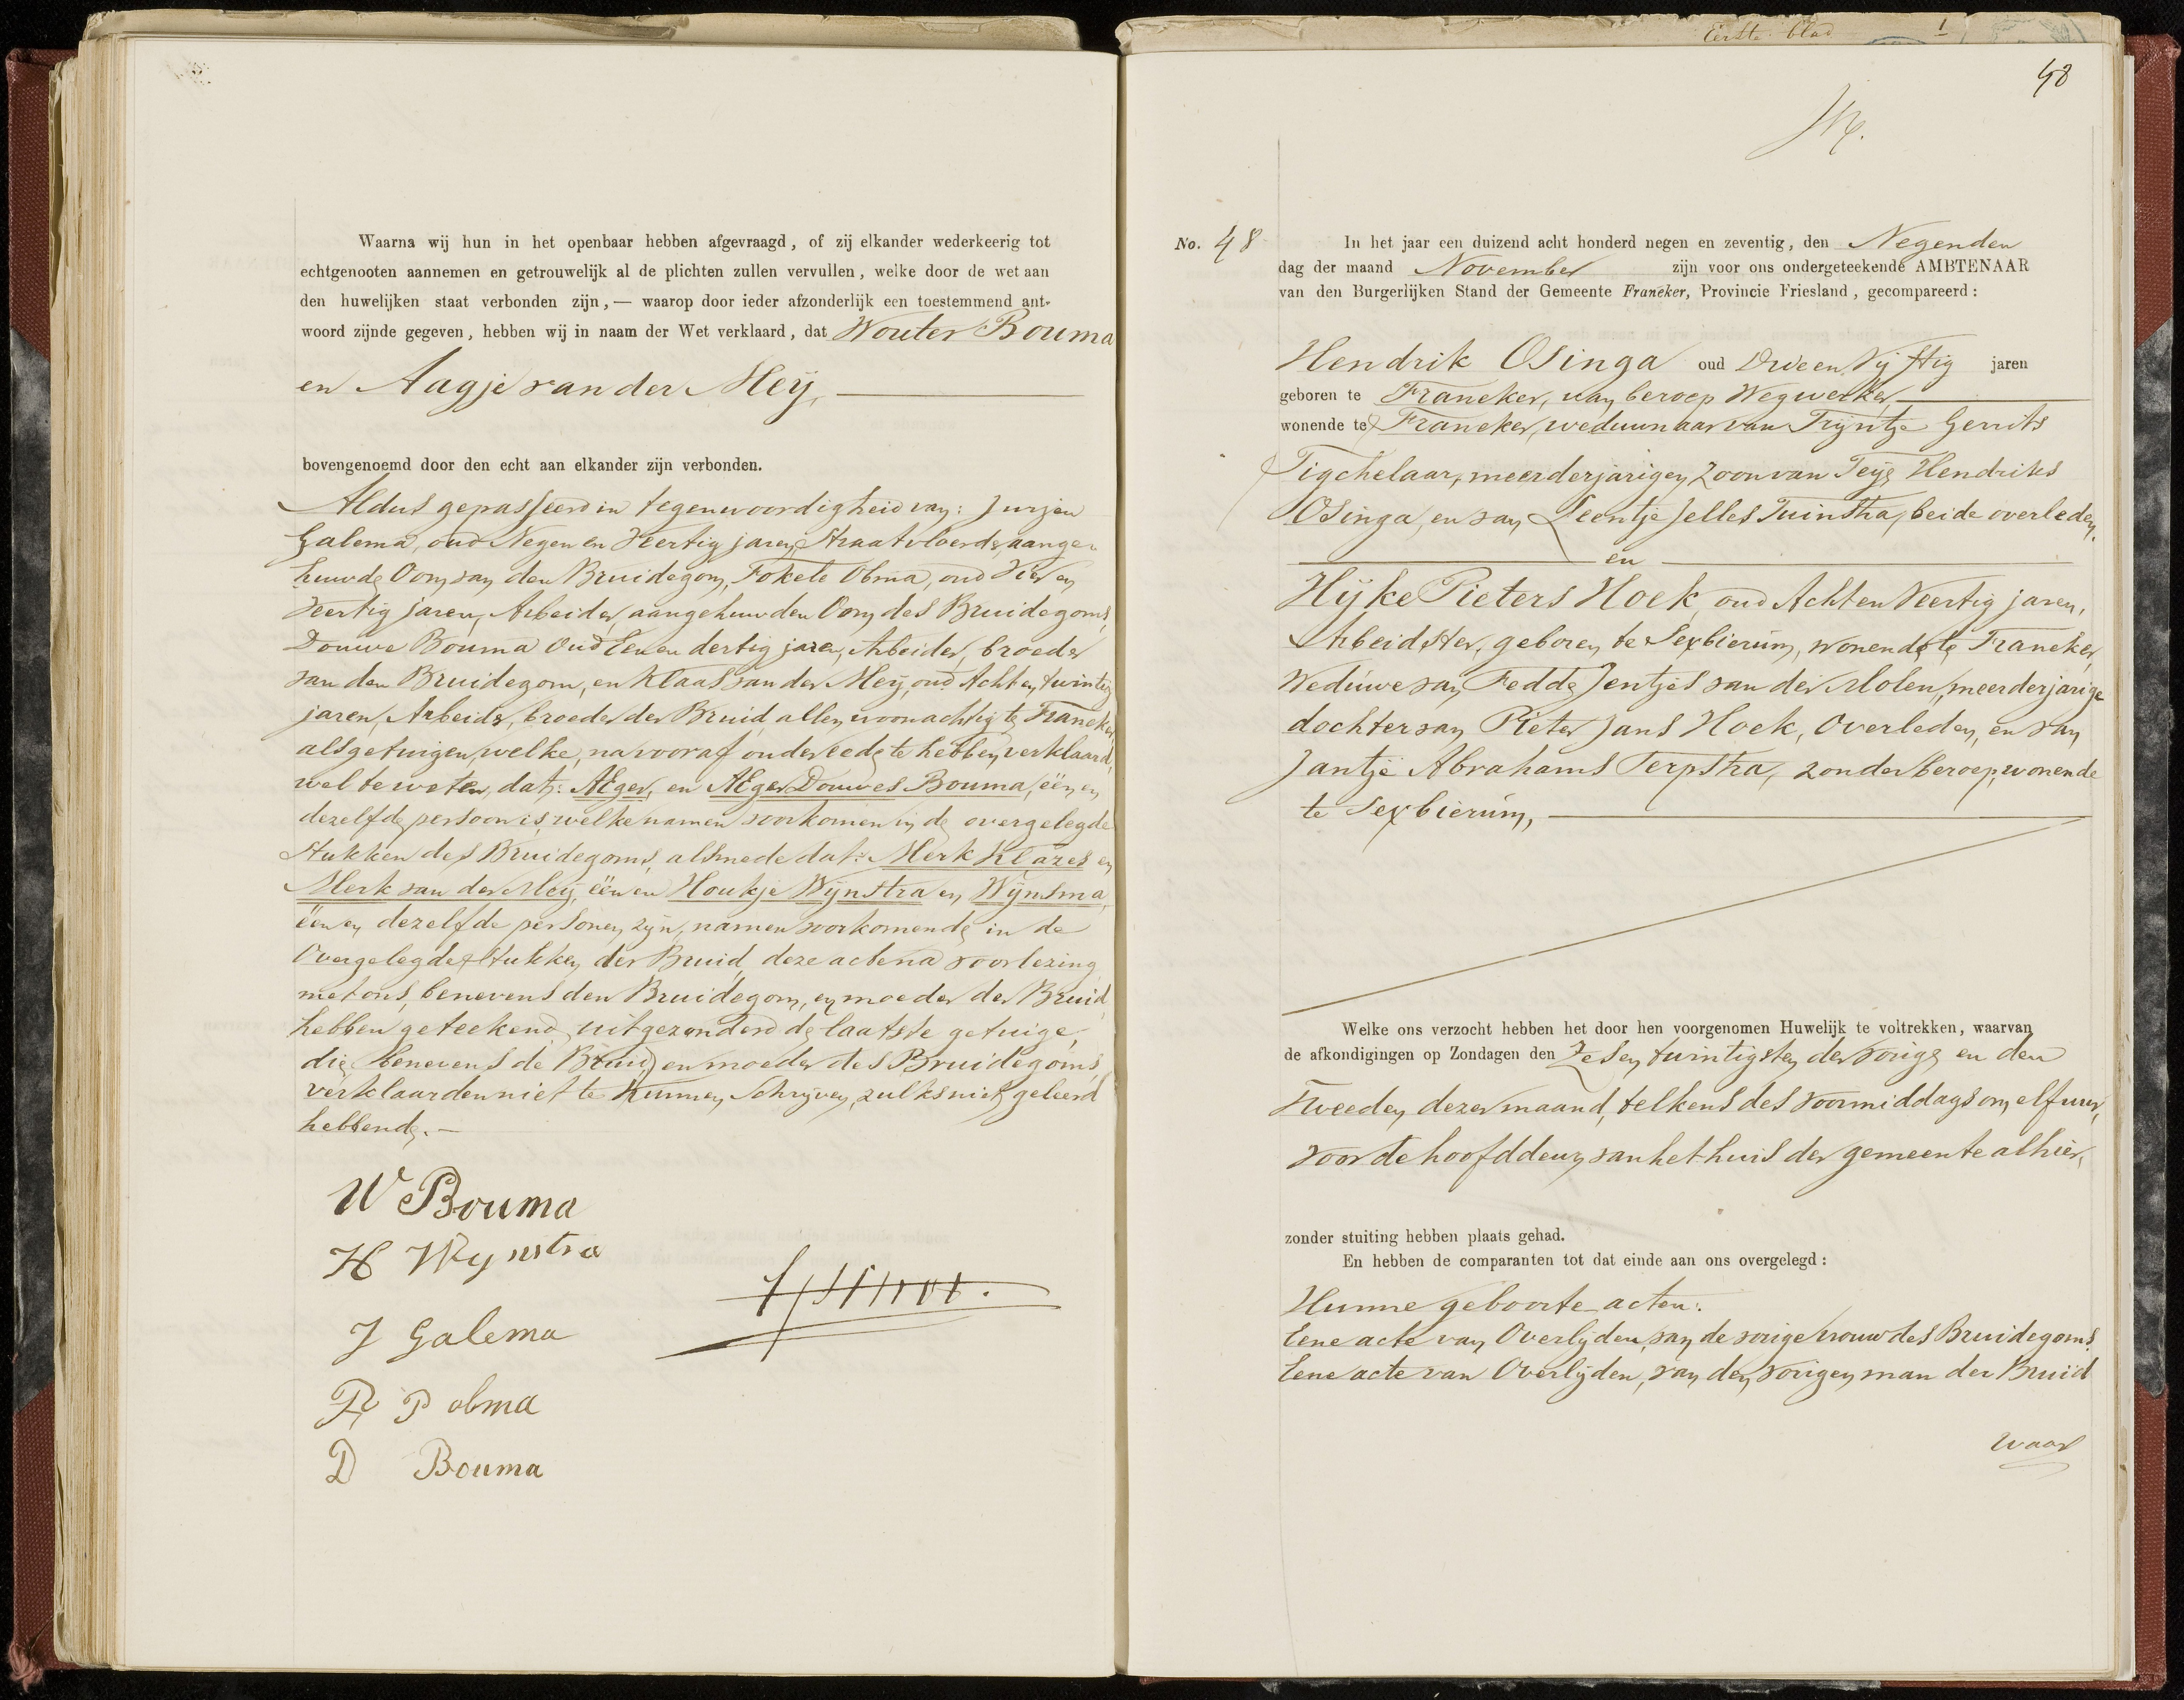 Waarna wij hun in het openbaar hebben afgevraagd, of zij elkander wederkeerig tot
echtgenooten aannemen en getrouwelijk al de plichten zullen vervullen, welke door de wet aan
den huwelijken staat verbonden zijn,— waarop door ieder afzonderlijk een toestemmend ant-
woord zijnde gegeven, hebben wij in naam der Wet verklaard, dat Wouter Bouma
en Aagje van der Meij,
bovengenoemd door den echt aan elkander zijn verbonden.
Aldus gepasseerd in tegenwoordigheid van: Jurjen
Galema, oud Negen en Veertig jaren, Straatvloerder, aange-
huwde Oom van den Bruidegom, Fokele Obma, oud Vier en
Veertig jaren, Arbeider, aangehuwden Oom des Bruidegoms,
Douwe Bouma Oud Een en dertig jaren, Arbeider, broeder
van den Bruidegom, en Klaas van der Meij, oud Acht en twintig
jaren, Arbeider, broeder der Bruid, allen woonachtig te Franeker
als getuigen, welke, na vooraf onder eede te hebben verklaard,
wel te weten, dat: AEger, en AEger Douwes Bouma, één en
dezelfde persoon is, welke namen voorkomen in de overgelegde
Stukken des Bruidegoms, alsmede dat: Merk Klazes en
Merk van der Meij, één en Houkje Wijnstra en Wijnsma,
één en dezelfde personen zijn, namen voorkomende in de
Overgelegde Stukken der Bruid, deze acte na voorlezing
met ons, benevens den Bruidegom, en moeder der Bruid
hebben geteekend, uitgezonderd de laatste getuige,
die benevens de Bruid en moeder des Bruidegoms
verklaarden niet te kunnen Schrijven, zulks niet geleerd
hebbende.—
W Bouma
H Wynstra
J Galema
F P obma
D Bouma
Eerste blad 1
48
No. 48
In het jaar een duizend acht honderd negen en zeventig, den Negenden
dag der maand November zijn voor ons ondergeteekende AMBTENAAR
van den Burgerlijken Stand der Gemeente Franeker, Provincie Friesland, gecompareerd:
Hendrik Osinga oud Drie en Vijftig jaren
geboren te Franeker, van beroep Wegwerker
wonende te Franeker, weduwnaar van Trijntje Gerrits
Tigchelaar, meerderjarigen Zoon van Teije Hendriks
Osinga, en van Leentje Jelles Tuinstra, beide overleden.
en
Hijke Pieters Hoek, oud Acht en Veertig jaren,
Arbeidster, geboren te Sexbierum, wonende te Franeker,
Weduwe van Fedde Jentjes van der Molen, meerderjarige
dochter van Pieter Jans Hoek, Overleden, en van
Jantje Abrahams Terpstra, zonder beroep, wonende
te Sexbierum,
Welke ons verzocht hebben het door hen voorgenomen Huwelijk te voltrekken, waarvan
de afkondigingen op Zondagen den Zes en twintigsten der vorige en den
Tweeden dezer maand, telkens des voormiddags om elf uur,
voor de hoofddeur van het huis der gemeente alhier,
zonder stuiting hebben plaats gehad.
En hebben de comparanten tot dat einde aan ons overgelegd:
Hunne geboorte acten:
Eene acte van Overlijden, van de vorige vrouw des Bruidegoms.
Eene acte van Overlijden, van den vorigen man der Bruid
waar